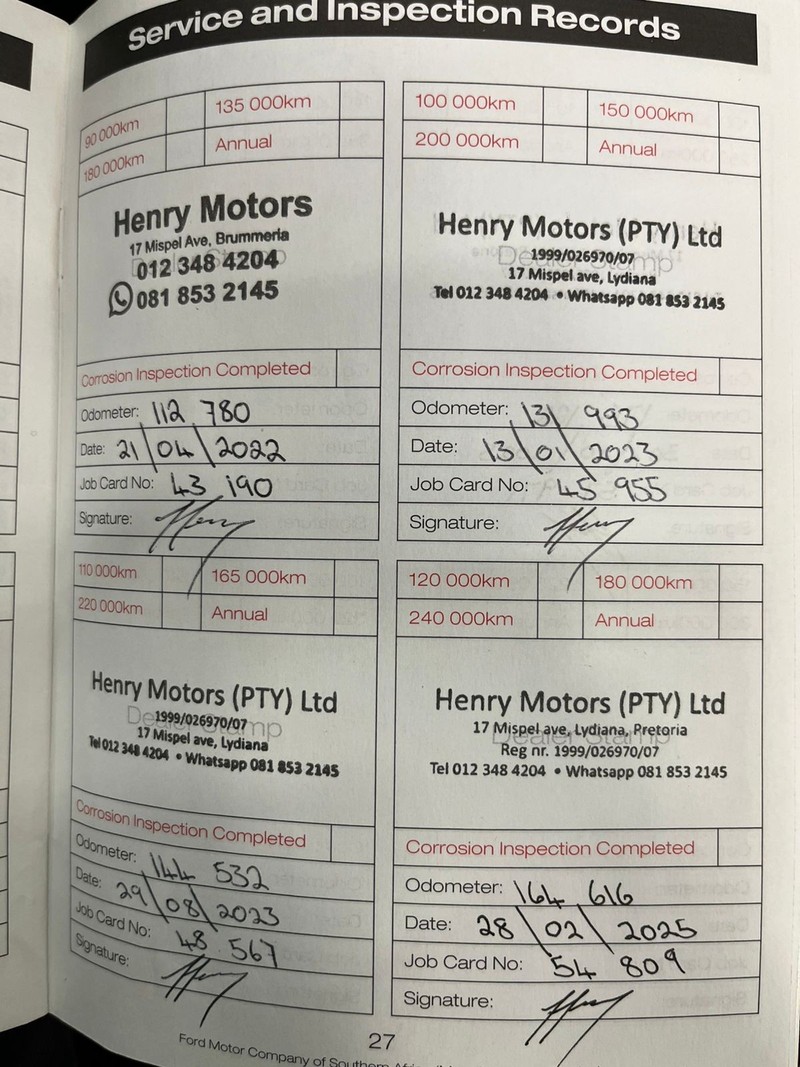 Service and Inspection Records
90 000km
135 000km
180 000km
Annual
Henry Motors
17 Mispel Ave, Brummeria
Dealer Stamp
012 348 4204
081 853 2145
Corrosion Inspection Completed
Odometer: 112 780
Date: 21\04\2022
Job Card No: 43 190
Signature:
100 000km
150 000km
200 000km
Annual
Henry Motors (PTY) Ltd
1999/026970/07
Dealer Stamp
17 Mispel ave, Lydiana
Tel 012 348 4204 • Whatsapp 081 853 2145
Corrosion Inspection Completed
Odometer: 131 993
Date: 13\01\2023
Job Card No: 45 955
Signature:
110 000km
165 000km
220 000km
Annual
Henry Motors (PTY) Ltd
1999/026970/07
Dealer Stamp
17 Mispel ave, Lydiana
Tel 012 348 4204 • Whatsapp 081 853 2145
Corrosion Inspection Completed
Odometer: 144 532
Date: 29\08\2023
Job Card No: 48 567
Signature:
120 000km
180 000km
240 000km
Annual
Henry Motors (PTY) Ltd
17 Mispel ave, Lydiana, Pretoria
Dealer Stamp
Reg nr. 1999/026970/07
Tel 012 348 4204 • Whatsapp 081 853 2145
Corrosion Inspection Completed
Odometer: 164 616
Date: 28\02\2025
Job Card No: 54 809
Signature:
27
Ford Motor Company of Southern